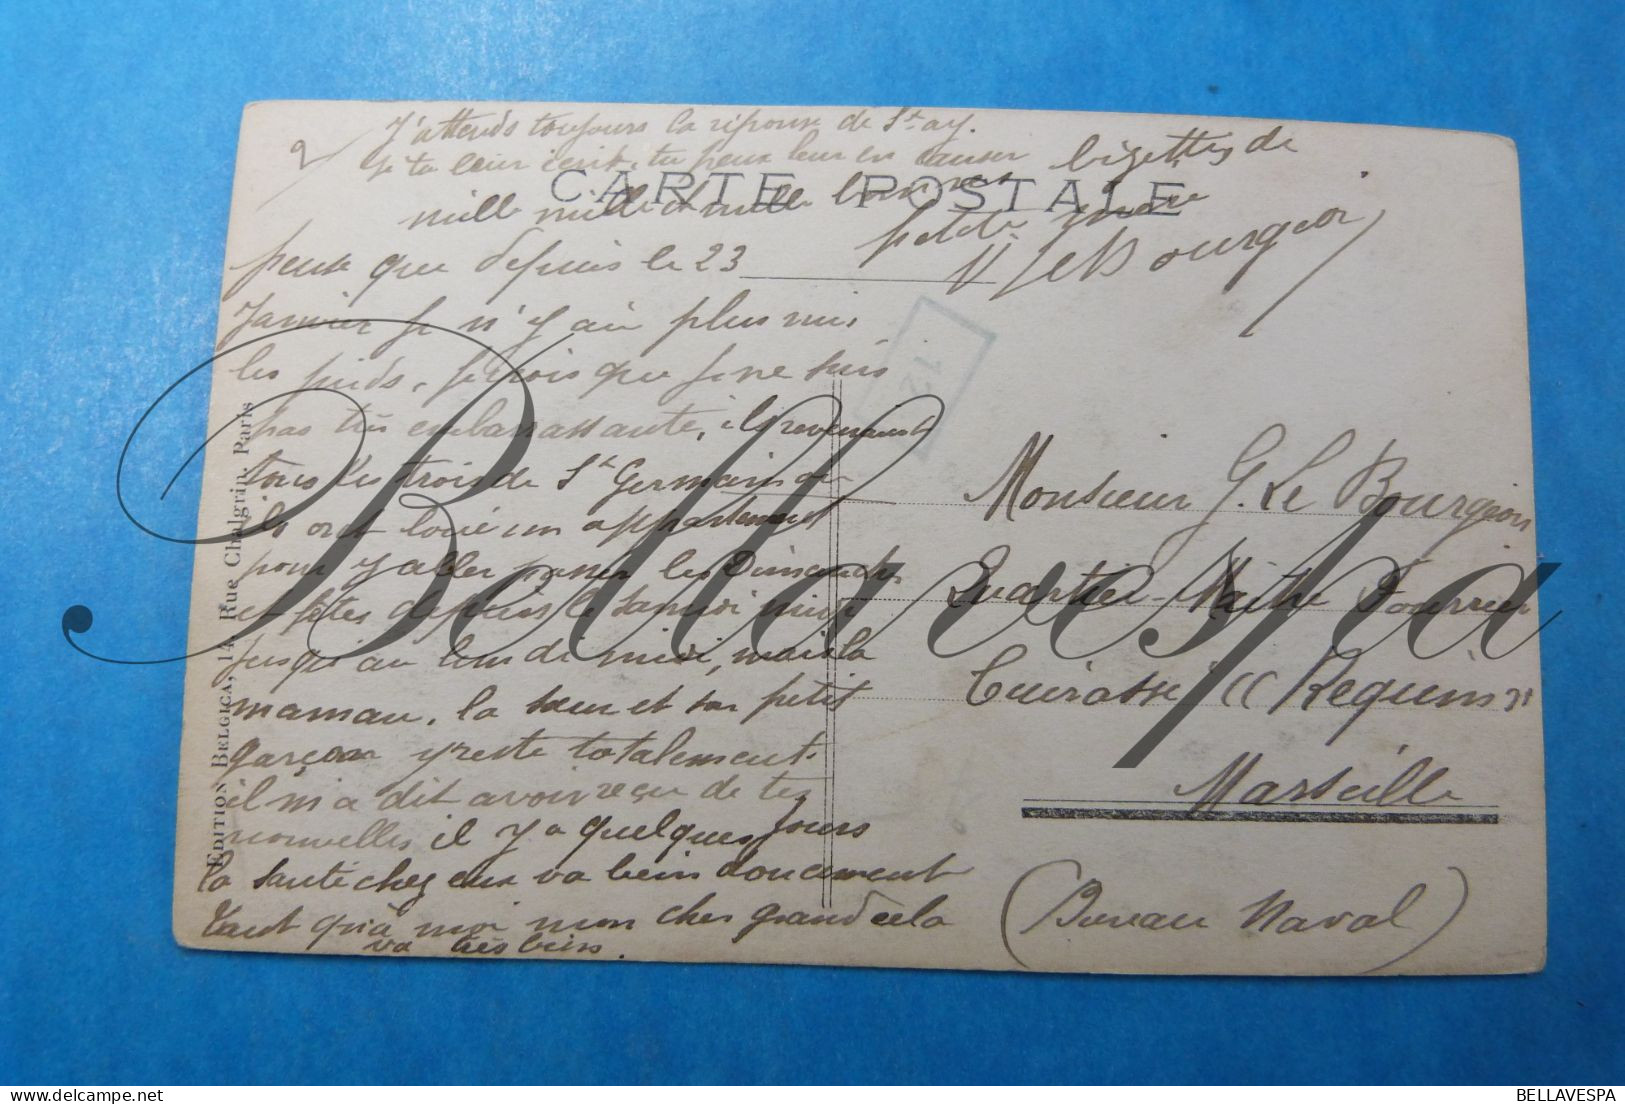 2/
J'attends toujours la réponse de St ay.
Si tu leur écrit, tu peux leur en causer
mille mille et mille bonnes bizettes de
petite mère
V LeBourgeois
CARTE POSTALE
pense que depuis le 23
Janvier je n'y ai plus mis
les pieds, je crois que je ne suis
pas très embarassante, ils revenaient
tous les trois de St Germain où
ils ont loué un appartement
pour y aller passer les Dimanches
et fêtes depuis le samedi midi
jusqu'au lundi midi, mais la
maman, la sœur et son petit
garçon y reste totalement.
il m'a dit avoir reçu de tes
nouvelles il y a quelques jours
la santé chez eux va bien doucement
tant qu'à moi mon cher grand cela
va très bien.
12
Monsieur G. Le Bourgeois
Quartier-Maître Fourrier
Cuirassé "Requin"
Marseille
(Bureau Naval)
EDITION BELGICA, 14 Rue Chalgrin, Paris
Bellavespa
BELLAVESPA